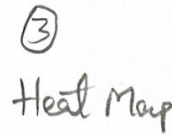 ③
Heat Map